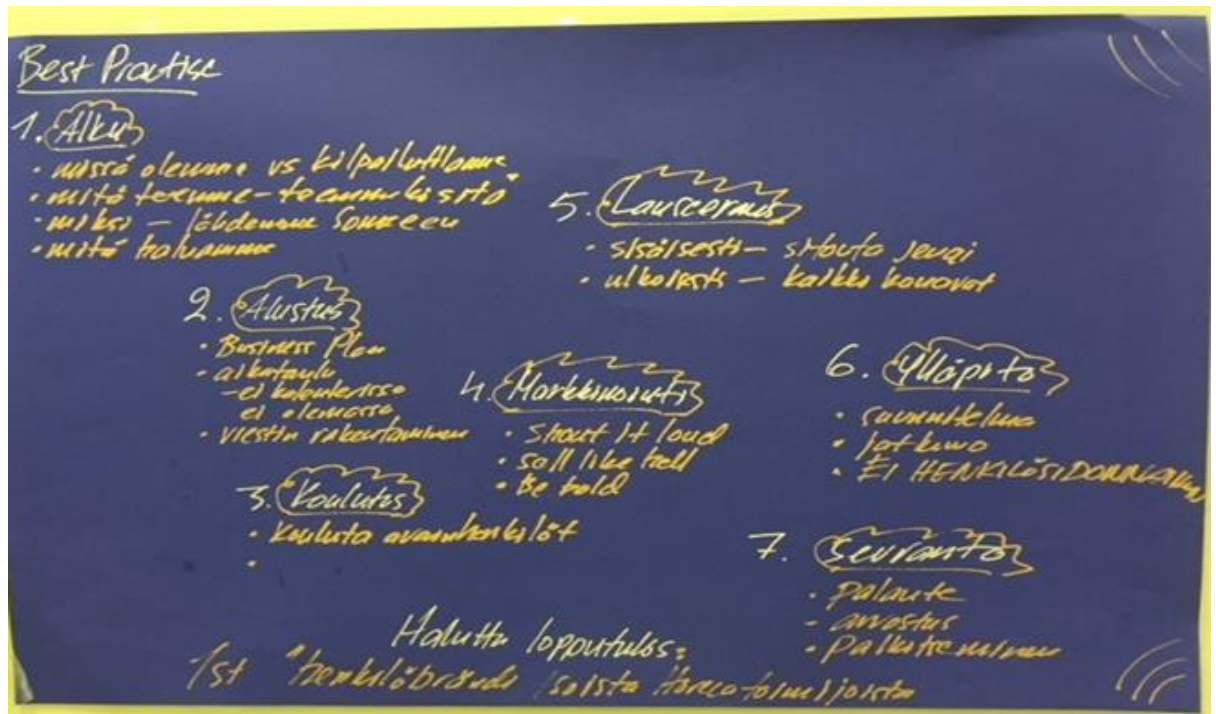 Best Practise
1. Alku
• missä olemme vs kilpailutilanne
• mitä teemme -
• miksi - lähdemme Someen
• mitä haluamme
2. Alustus
• Business Plan
• aikataulu
- ei kalenterissa
ei olemassa
• viestin rakentaminen
3. Koulutus
• kouluta avainhenkilöt
4. Markkinointi
• Shout it loud
• sell like hell
• Be bold
5. Lanseeraus
• sisäisesti - sitouta
• ulkoisesti - kaikki kanavat
6. Ylläpito
• suunnitelma
• jatkuva
• EI HENKILÖSIDONNAINEN
7. Seuranta
• palaute
- arvostus
• palkitseminen
Haluttu lopputulos:
1st "henkilöbrändi isoista Horecatoimijoista